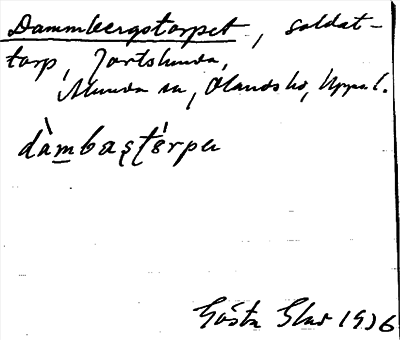 Dammbergstorpet, soldat-
torp, Jortslunda,
Alunda sn, Olands hd, Uppsl.
dàmbaʂʈórpa
Gösta 1936